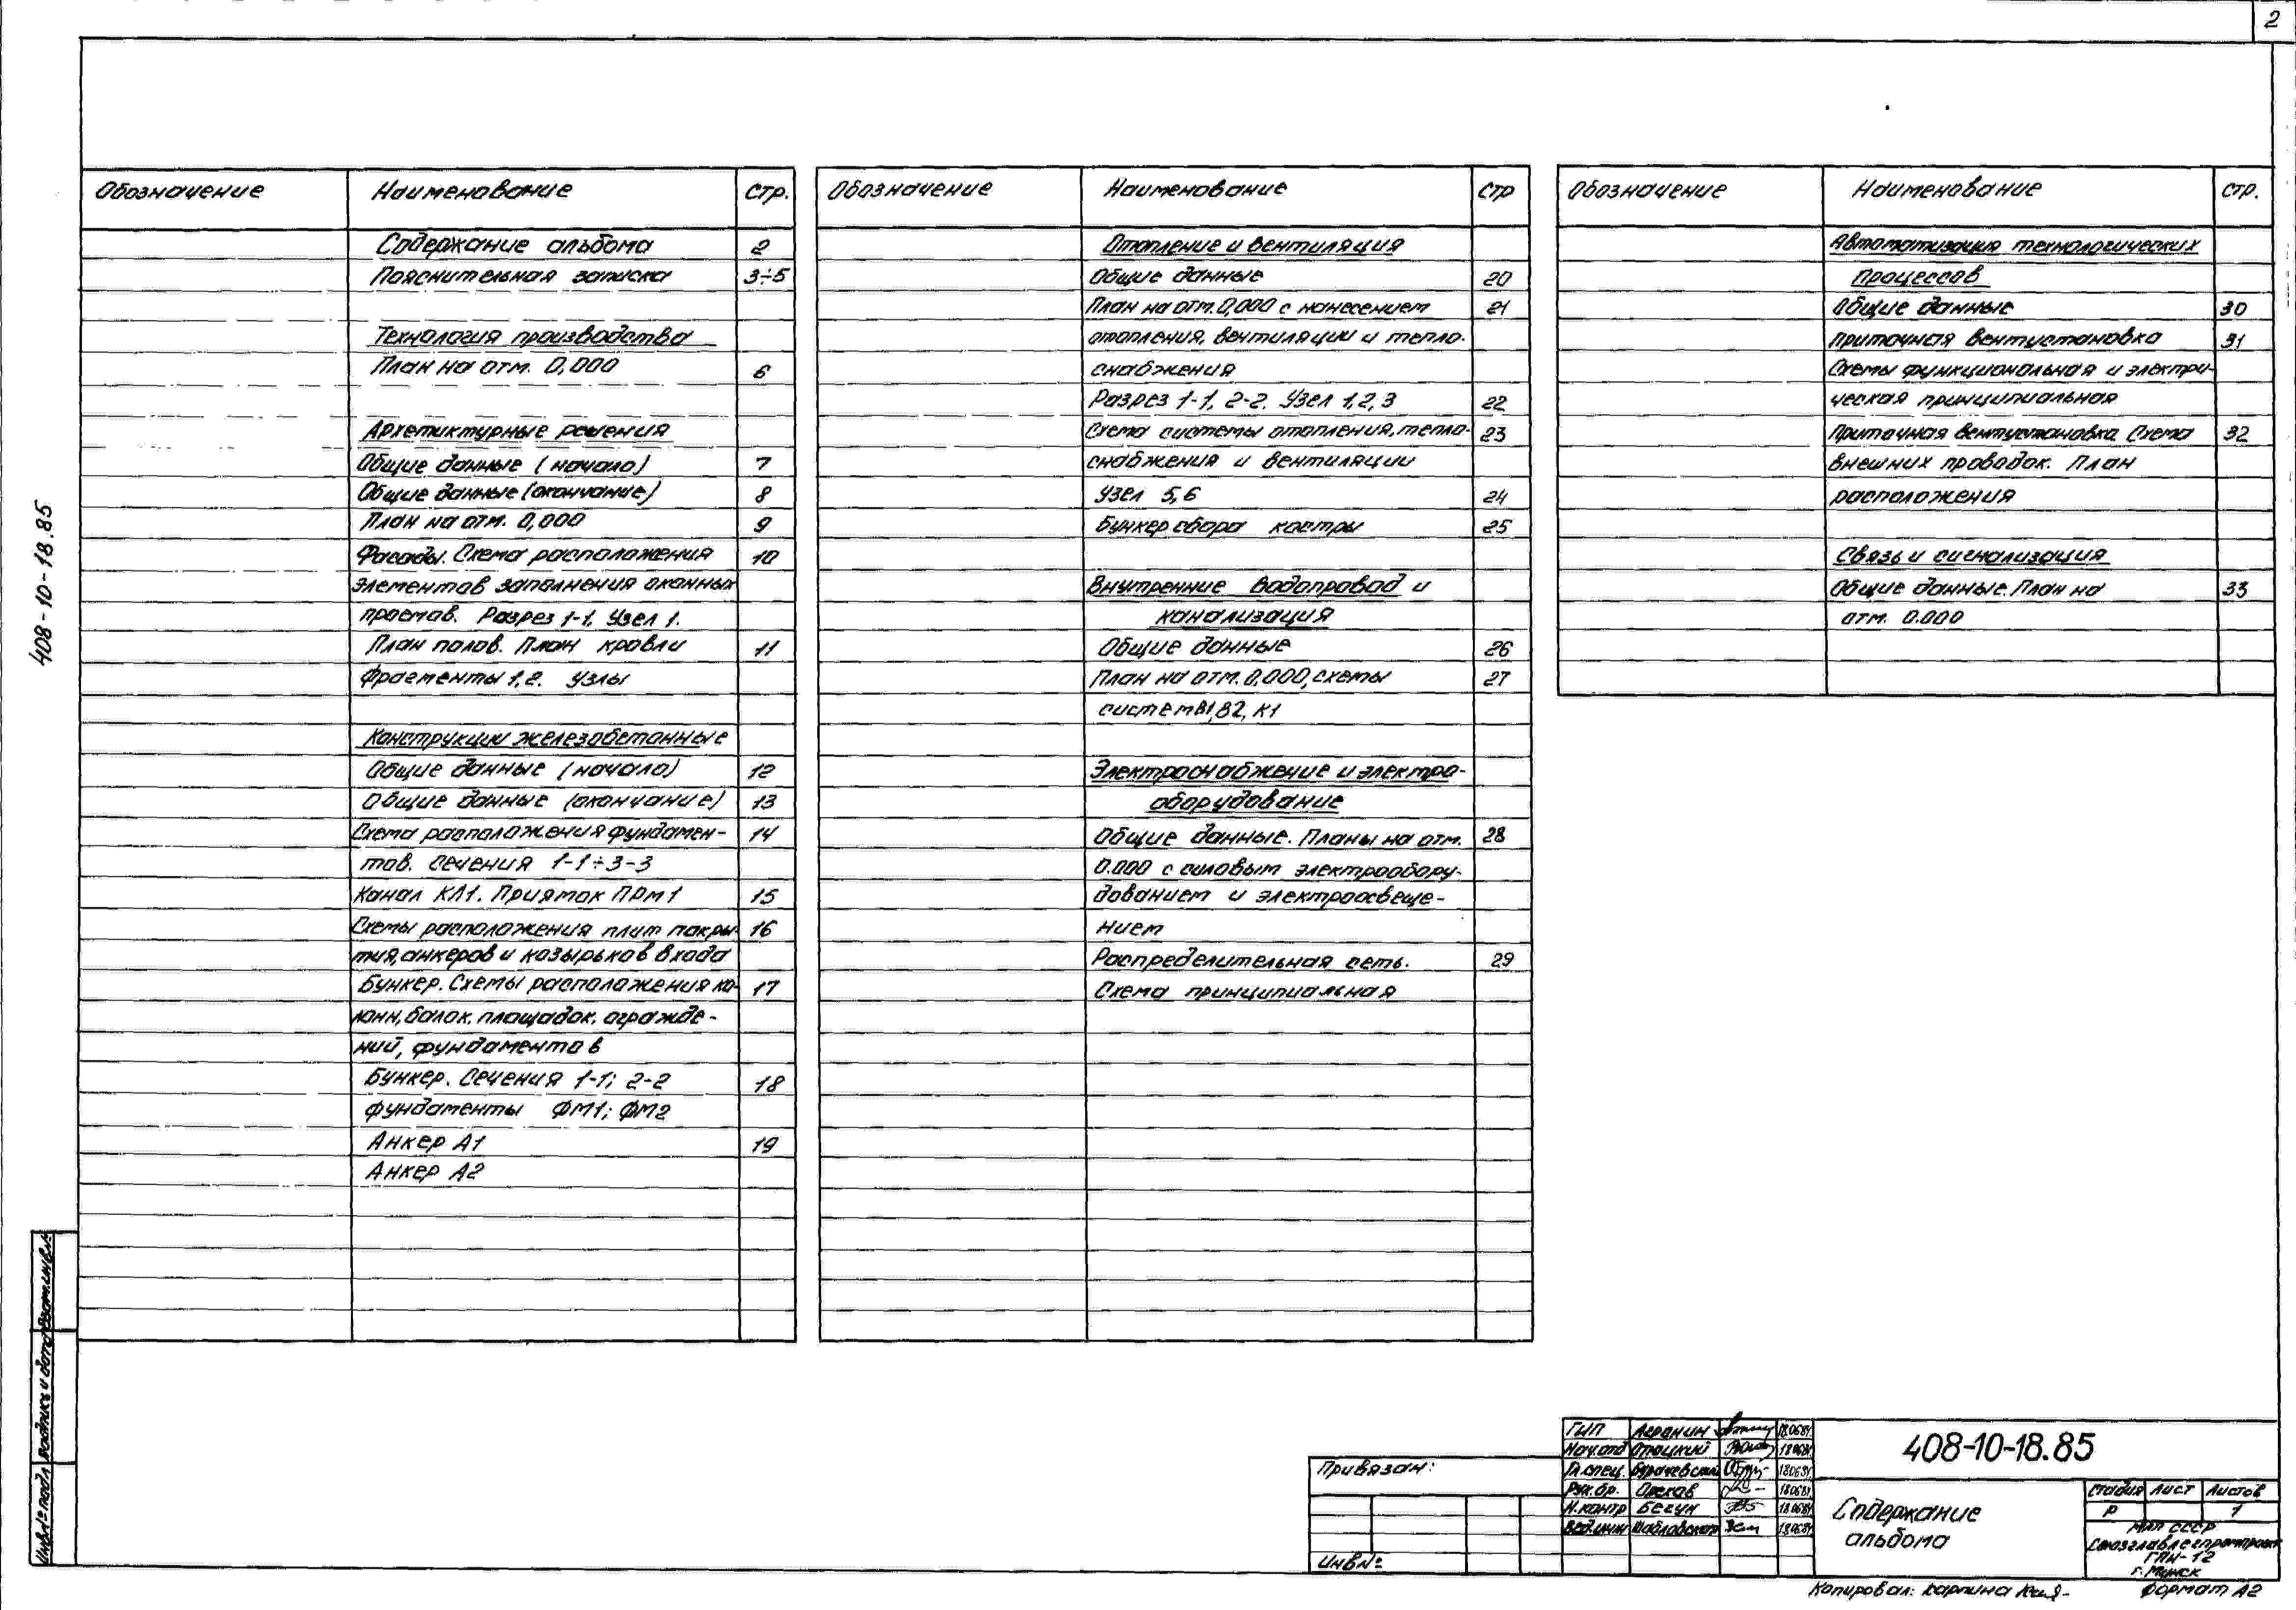 2
408-10-18.85
Обозначение Наименование Стр.
Содержание альбома 2
Пояснительная записка 3÷5
Технология производства
План на отм. 0,000 6
Архетиктурные решения
Общие данные (начало) 7
Общие данные (окончание) 8
План на отм. 0,000 9
Фасады. Схема расположения 10
элементов заполнения оконных
проемов. Разрез 1-1, Узел 1.
План полов. План кровли 11
Фрагменты 1,2. Узлы
Конструкции железобетонные
Общие данные (начало) 12
Общие данные (окончание) 13
Схема расположения фундамен- 14
тов. Сечения 1-1÷3-3
Канал КЛ1. Приямок ПРм1 15
Схемы расположения плит покры- 16
тия, анкеров и козырьков входа
Бункер. Схемы расположения ко- 17
лонн, балок, площадок, огражде-
ний, фундаментов
Бункер. Сечения 1-1; 2-2 18
Фундаменты ФМ1; ФМ2
Анкер А1 19
Анкер А2
Обозначение Наименование Стр
Отопление и вентиляция
Общие данные 20
План на отм. 0,000 с нанесением 21
отопления, вентиляции и тепло-
снабжения
Разрез 1-1, 2-2. Узел 1,2,3 22
Схема системы отопления, тепло- 23
снабжения и вентиляции
Узел 5,6 24
Бункер сбора костры 25
Внутренние водопровод и
канализация
Общие данные 26
План на отм. 0,000, схемы 27
систем В1, В2, К1
Электроснабжение и электро-
оборудование
Общие данные. Планы на отм. 28
0.000 с силовым электрообору-
дованием и электроосвеще-
нием
Распределительная сеть. 29
Схема принципиальная
Обозначение Наименование Стр.
Автоматизация технологических
процессов
Общие данные 30
Приточная вентустановка 31
Схемы функциональная и электри-
ческая принципиальная
Приточная вентустановка Схема 32
внешних проводок. План
расположения
Связь и сигнализация
Общие данные. План на 33
отм. 0.000
Инв.№ подл. Подпись и дата Взам.инв.№
Привязан:
Инв №
ГИП Агранин 18.06.84
Нач.отд 18.06.84
Гл.спец. 18.06.84
Рук.бр. Орехов 18.06.84
Н.контр Бегун 18.06.84
Вед.инж Шабловская 18.06.84
408-10-18.85
Содержание
альбома
Стадия Лист Листов
Р 1
МЛП СССР
Союзглавлегпромпроект
ГПИ-12
г. Минск
Копировал: Карпина
Формат А2